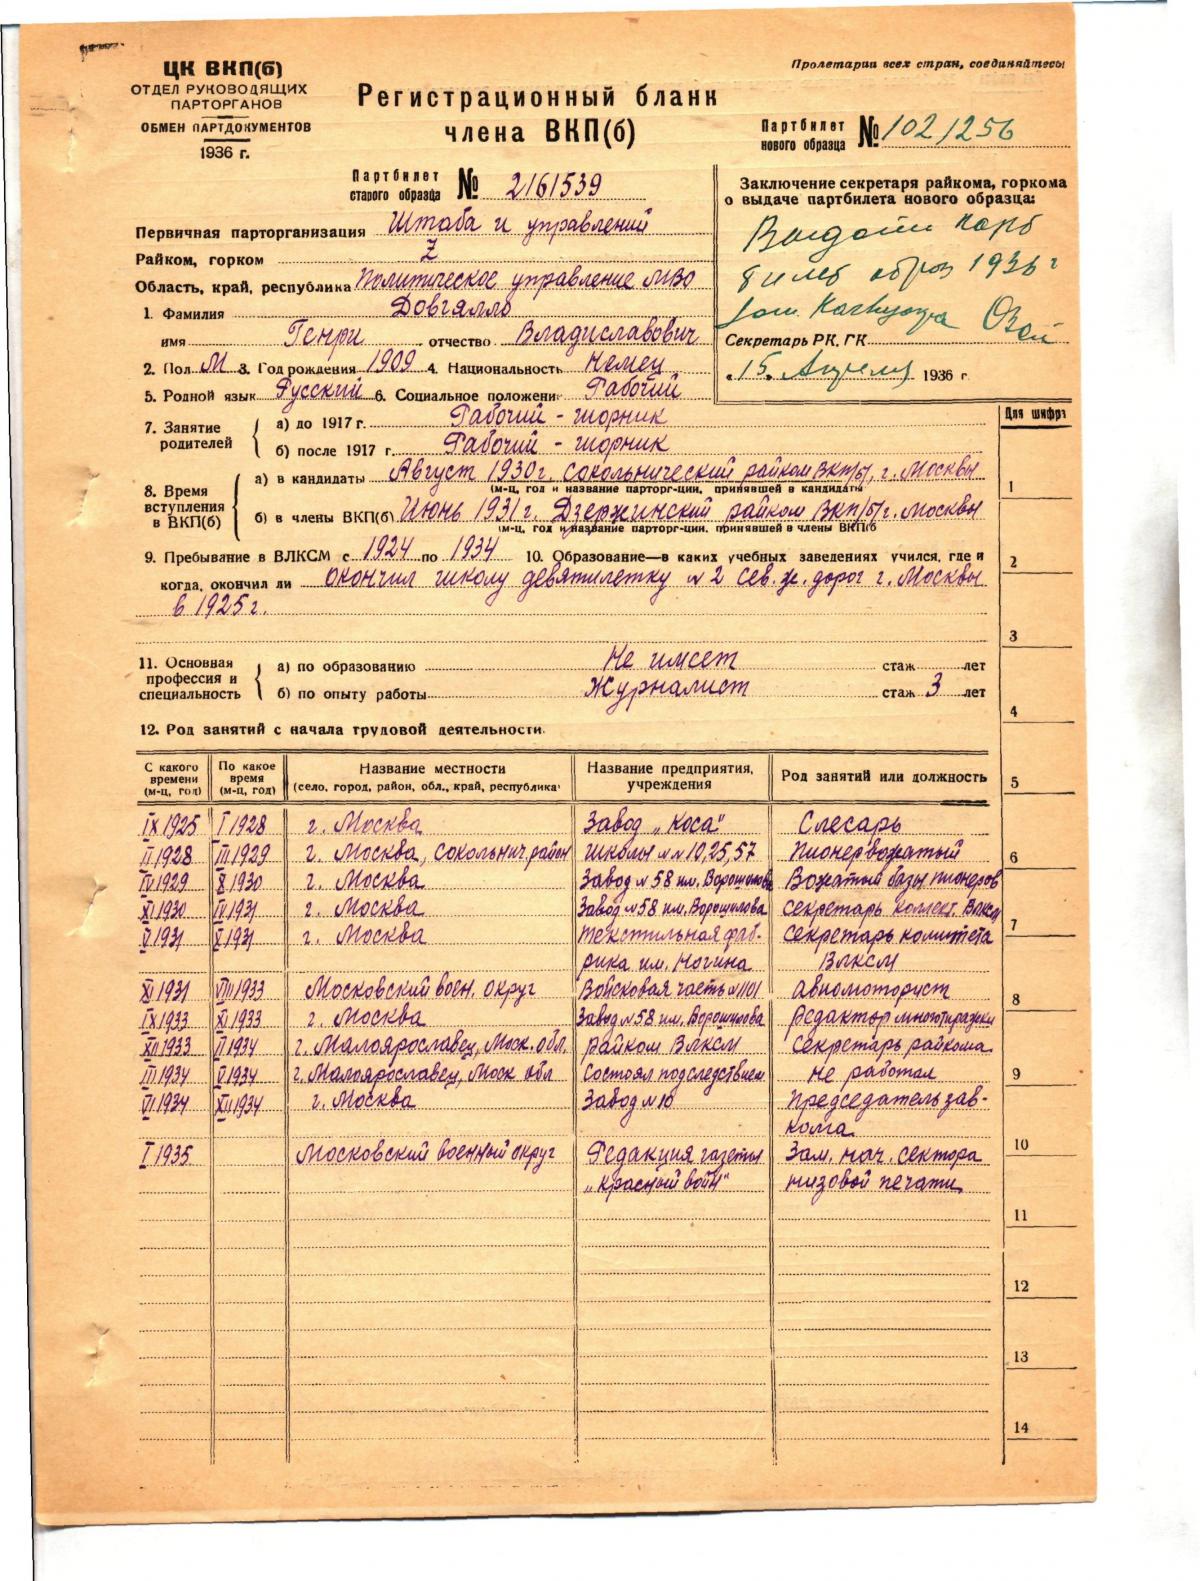 ЦК ВКП(б)
ОТДЕЛ РУКОВОДЯЩИХ
ПАРТОРГАНОВ
ОБМЕН ПАРТДОКУМЕНТОВ
1936 г.
Пролетарии всех стран, соединяйтесь
Регистрационный бланк
члена ВКП(б)
Партбилет нового образца № 1021256
Партбилет старого образца № 2161539
Первичная парторганизация Штаба и управлений
Райком, горком Z
Область, край, республика Политическое управление МВО
1. Фамилия Довгялло
имя Генри отчество Владиславович
2. Пол М 3. Год рождения 1909 4. Национальность Немец
5. Родной язык Русский 6. Социальное положени Рабочий
Заключение секретаря райкома, горкома
о выдаче партбилета нового образца:
Выдать парт
билет образ 1936 г
Секретарь РК, ГК
„15„ Апреля 1936 г.
7. Занятие родителей
а) до 1917 г. Рабочий - шорник
б) после 1917 г. Рабочий - шорник
8. Время вступления в ВКП(б)
а) в кандидаты Август 1930 г. Сокольнический райком ВКП/б/, г. Москвы
(м-ц, год и название парторг-ции, принявшей в кандидаты
б) в члены ВКП(б) Июнь 1931 г. Дзержинский райком ВКП/б/ г. Москвы
(м-ц, год и название парторг-ции, принявшей в члены ВКП(б
9. Пребывание в ВЛКСМ с 1924 по 1934 10. Образование—в каких учебных заведениях учился, где и
когда, окончил ли окончил школу девятилетку № 2 сев. ж. дорог г. Москвы
в 1925 г.
11. Основная профессия и специальность
а) по образованию Не имеет стаж лет
б) по опыту работы Журналист стаж 3 лет
12. Род занятий с начала трудовой деятельности.
С какого времени (м-ц, год) По какое время (м-ц, год) Название местности (село, город, район, обл., край, республика) Название предприятия, учреждения Род занятий или должность
IX 1925 I 1928 г. Москва Завод „Коса" Слесарь
II 1928 III 1929 г. Москва, сокольнич. район Школы №№ 10, 25, 57 Пионервожатый
IV 1929 X 1930 г. Москва Завод № 58 им. Ворошилова Вожатый базы пионеров
XI 1930 IV 1931 г. Москва Завод № 58 им. Ворошилова Секретарь коллект. ВЛКСМ
V 1931 X 1931 г. Москва Текстильная фаб- Секретарь комитета
рика им. Ногина ВЛКСМ
XI 1931 VIII 1933 Московский воен. округ Войсковая часть № 1101 Авиомоторист
IX 1933 XI 1933 г. Москва Завод № 58 им. Ворошилова Редактор многотиражки
XII 1933 II 1934 г. Малоярославец, Моск. обл. Райком ВЛКСМ Секретарь райкома
III 1934 V 1934 г. Малоярославец, Моск обл Состоял под следствием Не работал
VI 1934 XII 1934 г. Москва Завод № 10 Председатель зав-
кома
I 1935 Московский военный округ Редакция газеты Зам. нач. сектора
„Красный войн" низовой печати
Для шифра
1
2
3
4
5
6
7
8
9
10
11
12
13
14